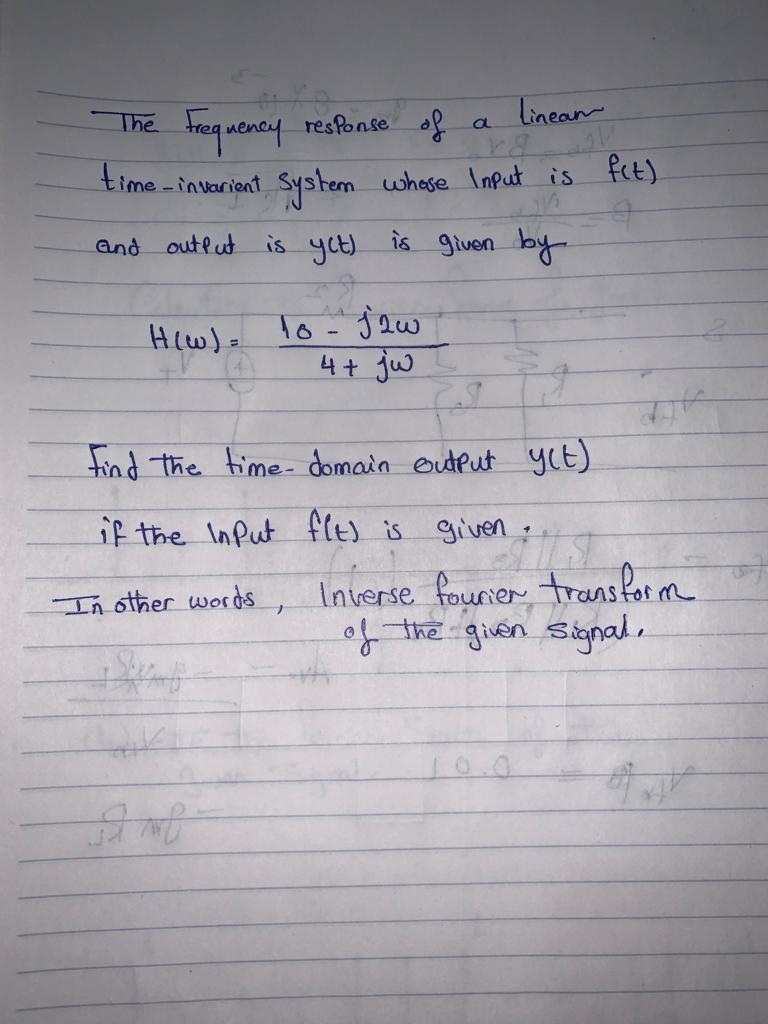 The frequency response of a linear
time-invarient system whose Input is f(t)
and output is y(t) is given by
H(w) = 10 - j2w
4 + jw
find the time-domain output y(t)
if the Input f(t) is given.
In other words, Inverse fourier transform
of the given signal.